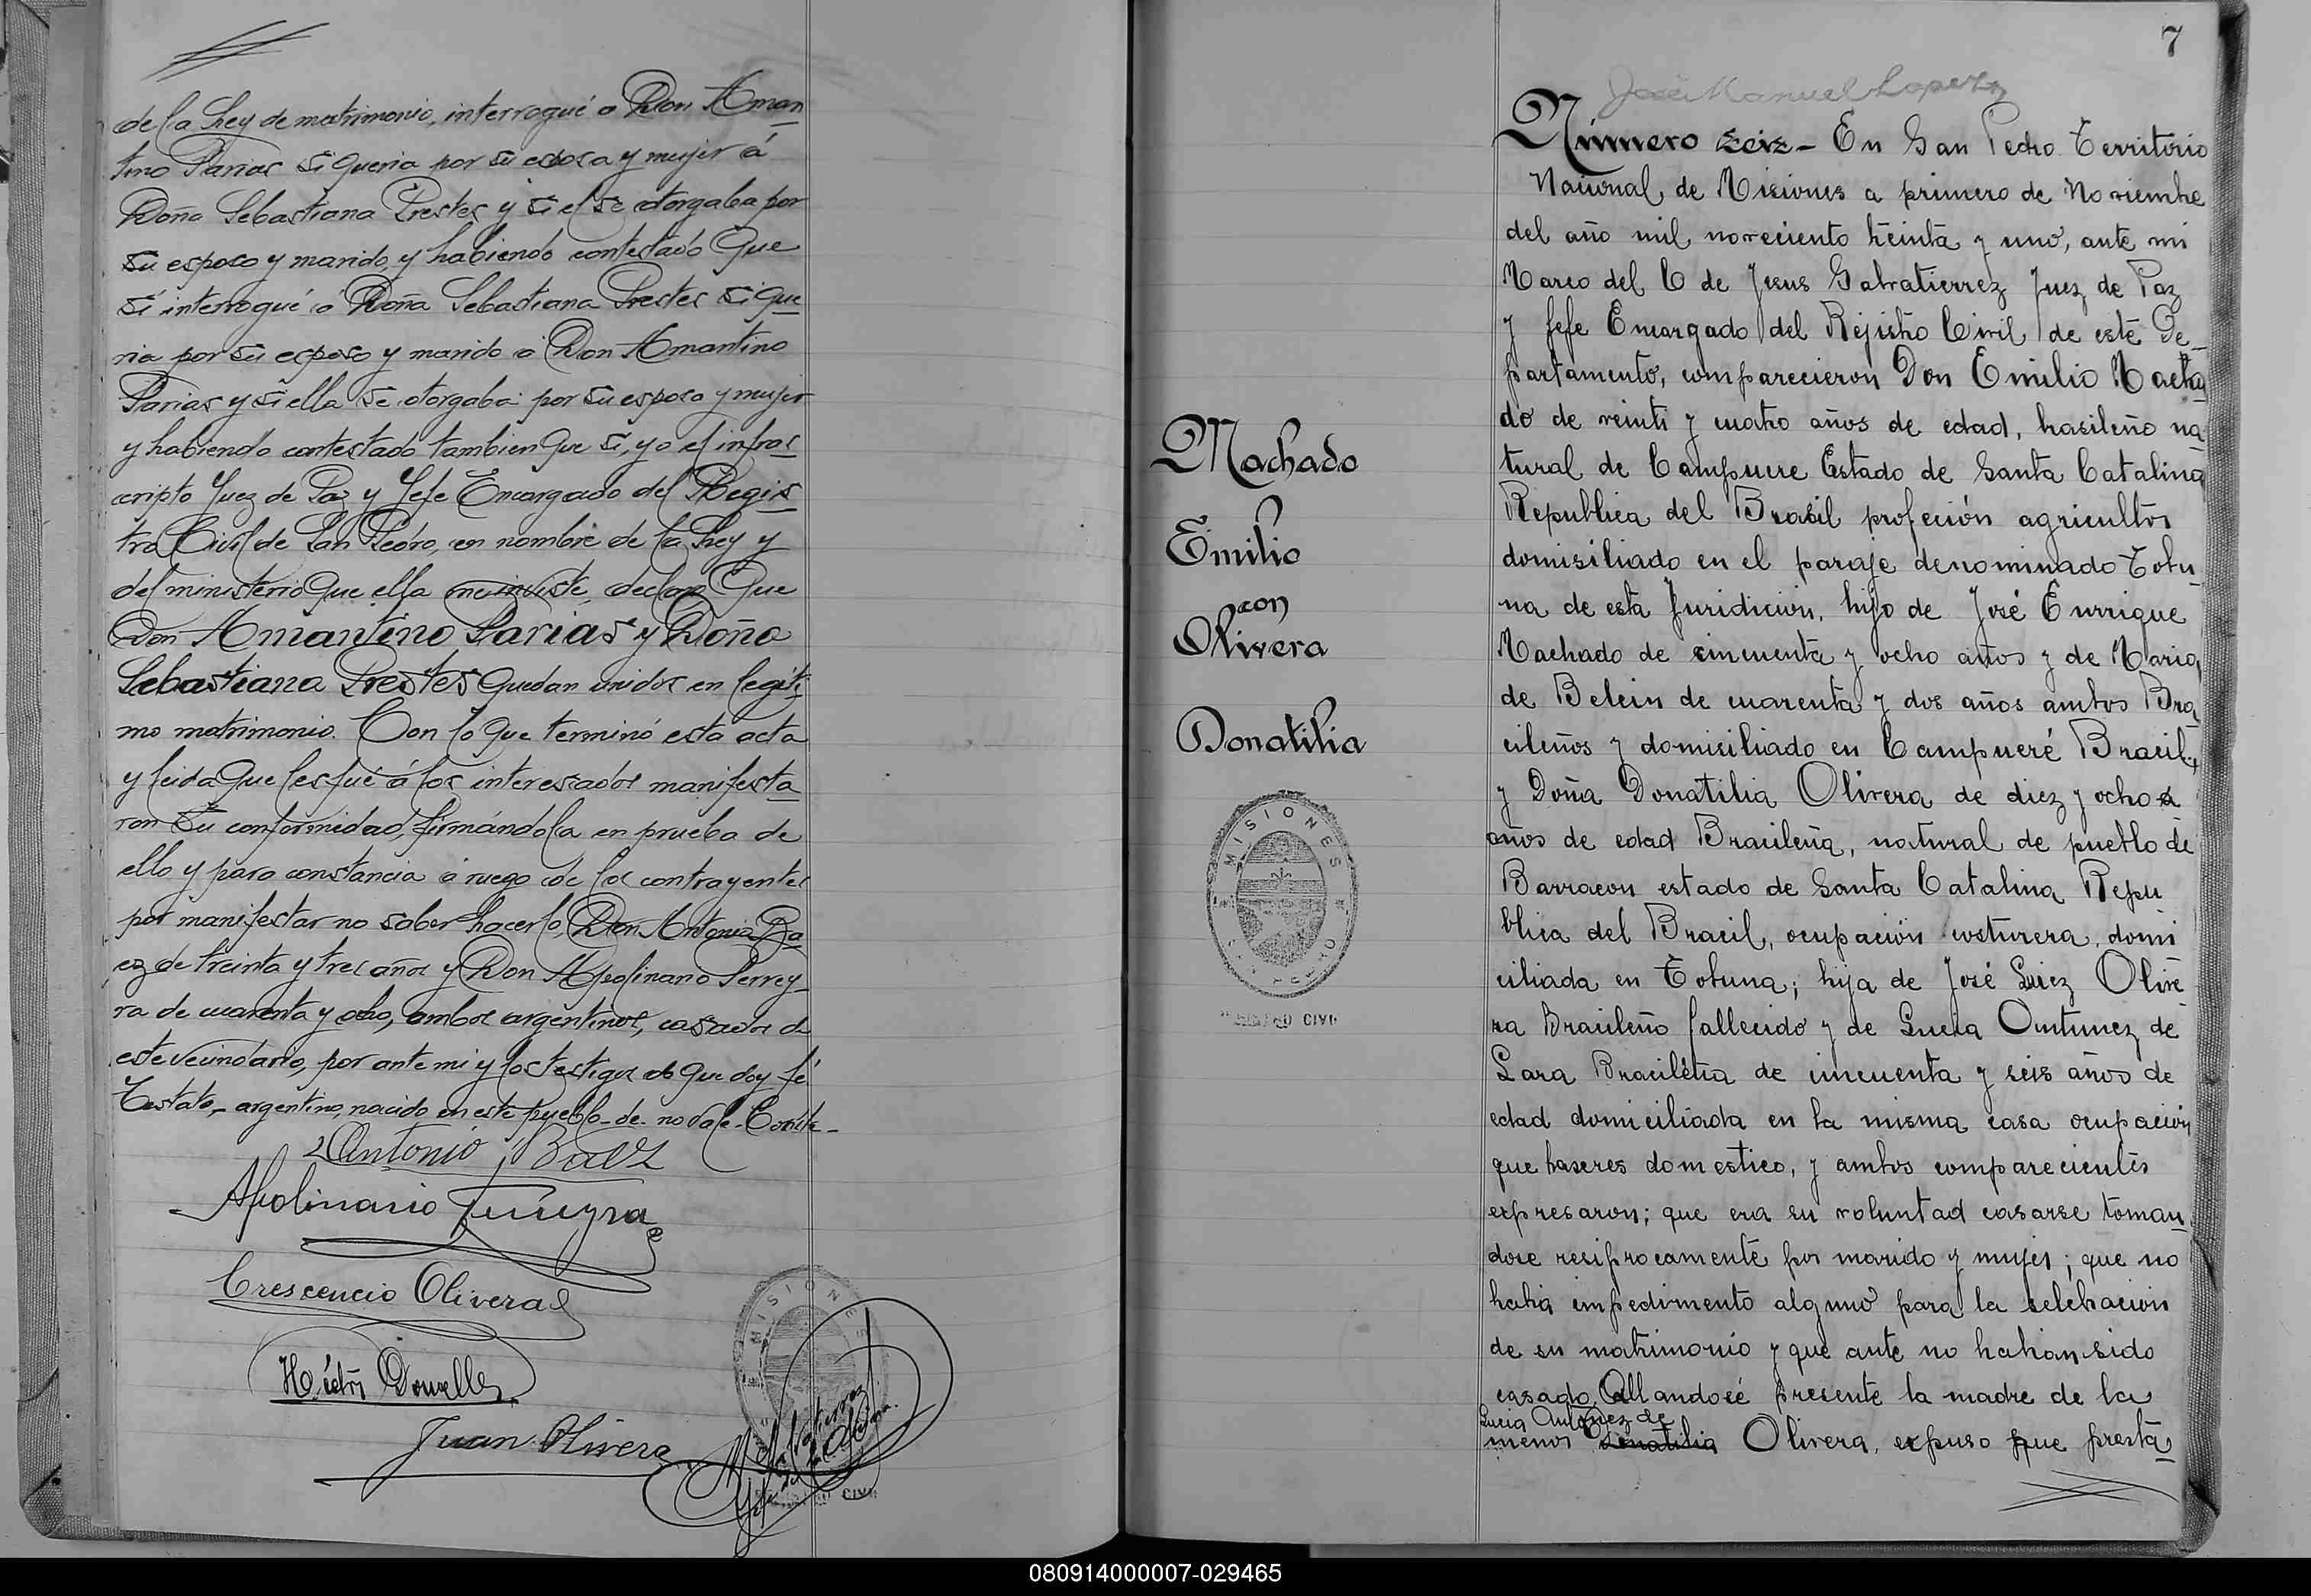 de la Ley de matrimonio, interrogué a Don Aman
tino Farias si queria por su esposa y mujer á
Doña Sebastiana Prestes y si el se otorgaba por
su esposo y marido, y habiendo contestado que
si interrogué á Doña Sebastiana Prestes si que
ria por su esposo y marido á Don Amantino
Farias y si ella se otorgaba por su esposo y mujer
y habiendo contestado tambien que si, yo el infras
cripto Juez de Paz y Jefe Encargado del Regis
tro Civil de San Pedro, en nombre de la Ley y
del ministerio que ella declaro que
Don Amantino Farias y Doña
Sebastiana Prestes quedan unidos en legiti
mo matrimonio. Con lo que terminó esta acta
y leida que les fué á los interesados manifesta
ron su conformidad, firmándola en prueba de
ello y para constancia á ruego de los contrayentes
por manifestar no saber hacerlo, Don Antonio Ba
ez de treinta y tres años y Don Apolinario Ferrey
ra de cuarenta y ocho, ambos argentinos, casados de
este vecindario, por ante mi y los testigos de que doy fé
Testato - argentino, nacido en este pueblo - de - no vale.
Antonio Baez
Apolinario Ferreyra
Crescencio Olivera
Juan Olivera
MISIONES
7
José Manuel Lopez
Número seis - En San Pedro Territorio
Nacional de Misiones a primero de Noviembre
del año mil noveciento treinta y uno, ante mi
Marco del C de Jesus Salvatierrez Juez de Paz
y Jefe Encargado del Rejistro Civil de este De-
partamento, comparecieron Don Emilio Macha
do de veinti y cuatro años de edad, brasileño na
tural de Campuere Estado de Santa Catalina
Republica del Brasil profeción agricultor
domisiliado en el paraje denominado Tobu-
na de esta Juridicion, hijo de José Enrrique
Machado de cincuenta y ocho años y de Maria
de Belein de cuarenta y dos años ambos Bra
cileños y domiciliado en Campueré Bracil,
y Doña Donatilia Olivera de diez y ocho
años de edad Bracileña, natural de pueblo de
Barracon estado de Santa Catalina Repu
blica del Bracil, ocupación costurera, domi
ciliada en Tobuna; hija de José Olive
ra Bracileño fallecido y de Lucia Ontunez de
Lara Bracileña de cincuenta y seis años de
edad domiciliada en la misma casa ocupación
que haseres domestico, y ambos comparecientes
expresaron; que era su voluntad casarse toman
dose resiprocamente por marido y mujer; que no
habia impedimento alguno para la selebracion
de su matrimonio y que ante no habian sido
casado, Allandosé presente la madre de la
Lucia Antunez de
menor Donatilia Olivera, expuso que presta
Machado
Emilio
con
Olivera
Donatilia
MISIONES
REGISTRO CIVIL
080914000007-029465